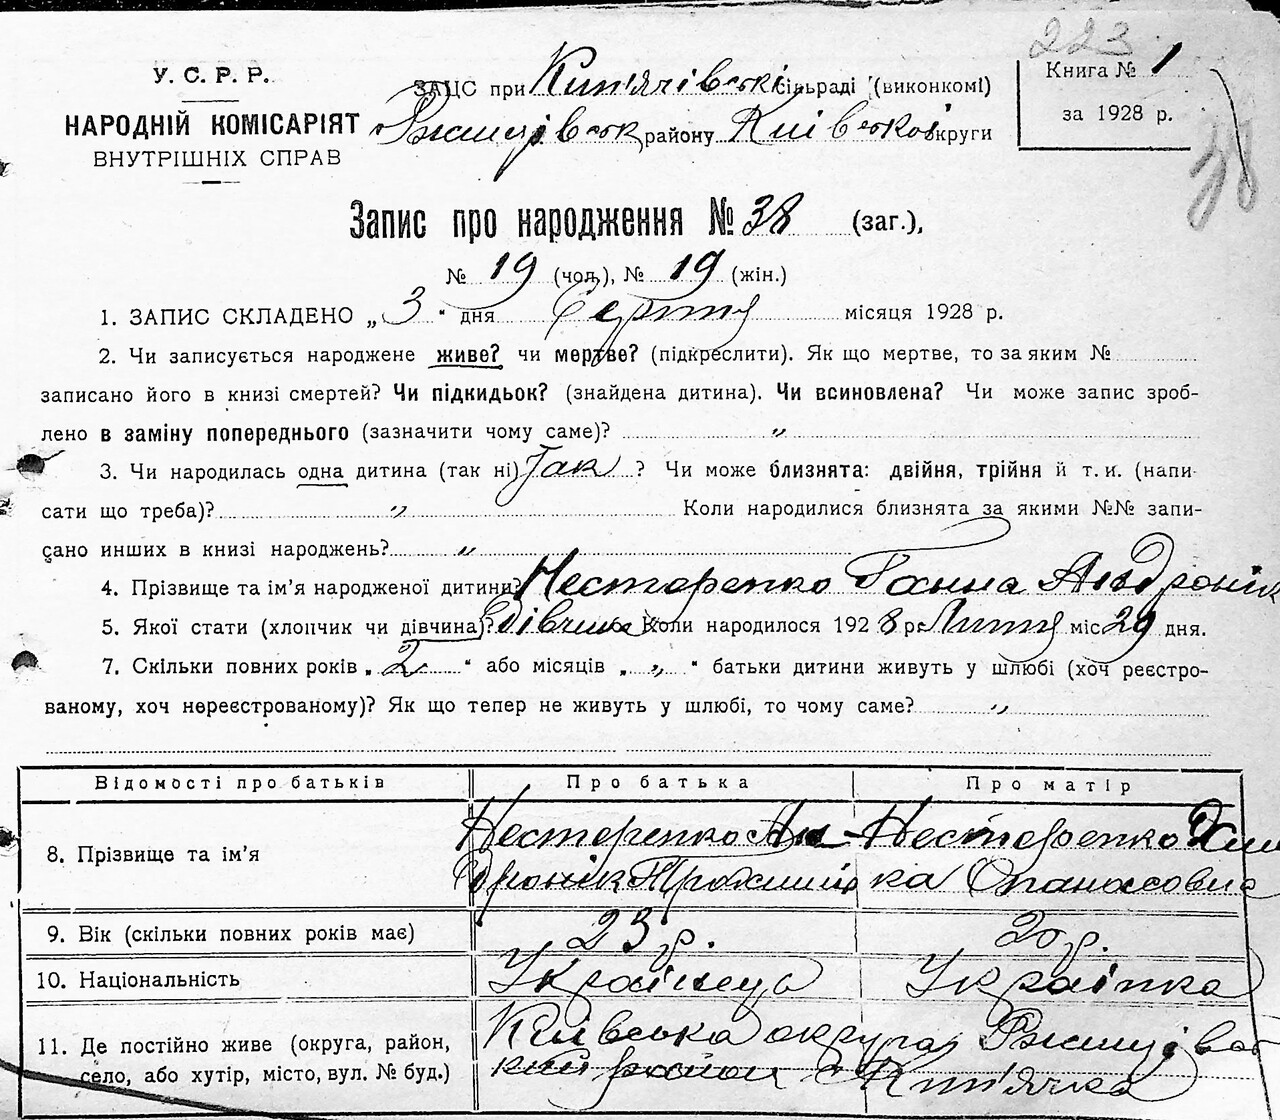 223
У. С. Р. Р.
НАРОДНІЙ КОМІСАРІЯТ
ВНУТРІШНІХ СПРАВ
ЗАЦС при Кип'ячівські сільраді (виконкомі)
Ржищівськ району Київської округи
Книга № 1
за 1928 р.
38
Запис про народження № 38 (заг.),
№ 19 (чол.), № 19 (жін.)
1. ЗАПИС СКЛАДЕНО „ 3 " дня Серпня місяця 1928 р.
2. Чи записується народжене живе? чи мертве? (підкреслити). Як що мертве, то за яким №
записано його в книзі смертей? Чи підкидьок? (знайдена дитина). Чи всиновлена? Чи може запис зроб-
лено в заміну попереднього (зазначити чому саме)? „
3. Чи народилась одна дитина (так ні) Так ? Чи може близнята: двійня, трійня й т. и. (напи-
сати що треба)? „ Коли народилися близнята за якими №№ запи-
сано инших в книзі народжень? „
4. Прізвище та ім'я народженої дитини? Нестеренко Ганна Андронік
5. Якої стати (хлопчик чи дівчина)? Дівчина Коли народилося 1928 р. Липня міс 29 дня.
7. Скільки повних років „ 2 " або місяців „ „ " батьки дитини живуть у шлюбі (хоч реєстро-
ваному, хоч нереєстрованому)? Як що тепер не живуть у шлюбі, то чому саме? „
Відомості про батьків Про батька Про матір
8. Прізвище та ім'я
Нестеренко Ан-
дронік
Нестеренко
ка Опанасовна
9. Вік (скільки повних років має) 23 р. 20 р.
10. Національність Українець Українка
11. Де постійно живе (округа, район,
село, або хутір, місто, вул. № буд.)
Київська округа Ржищівсь
кий район с Кип'ячка